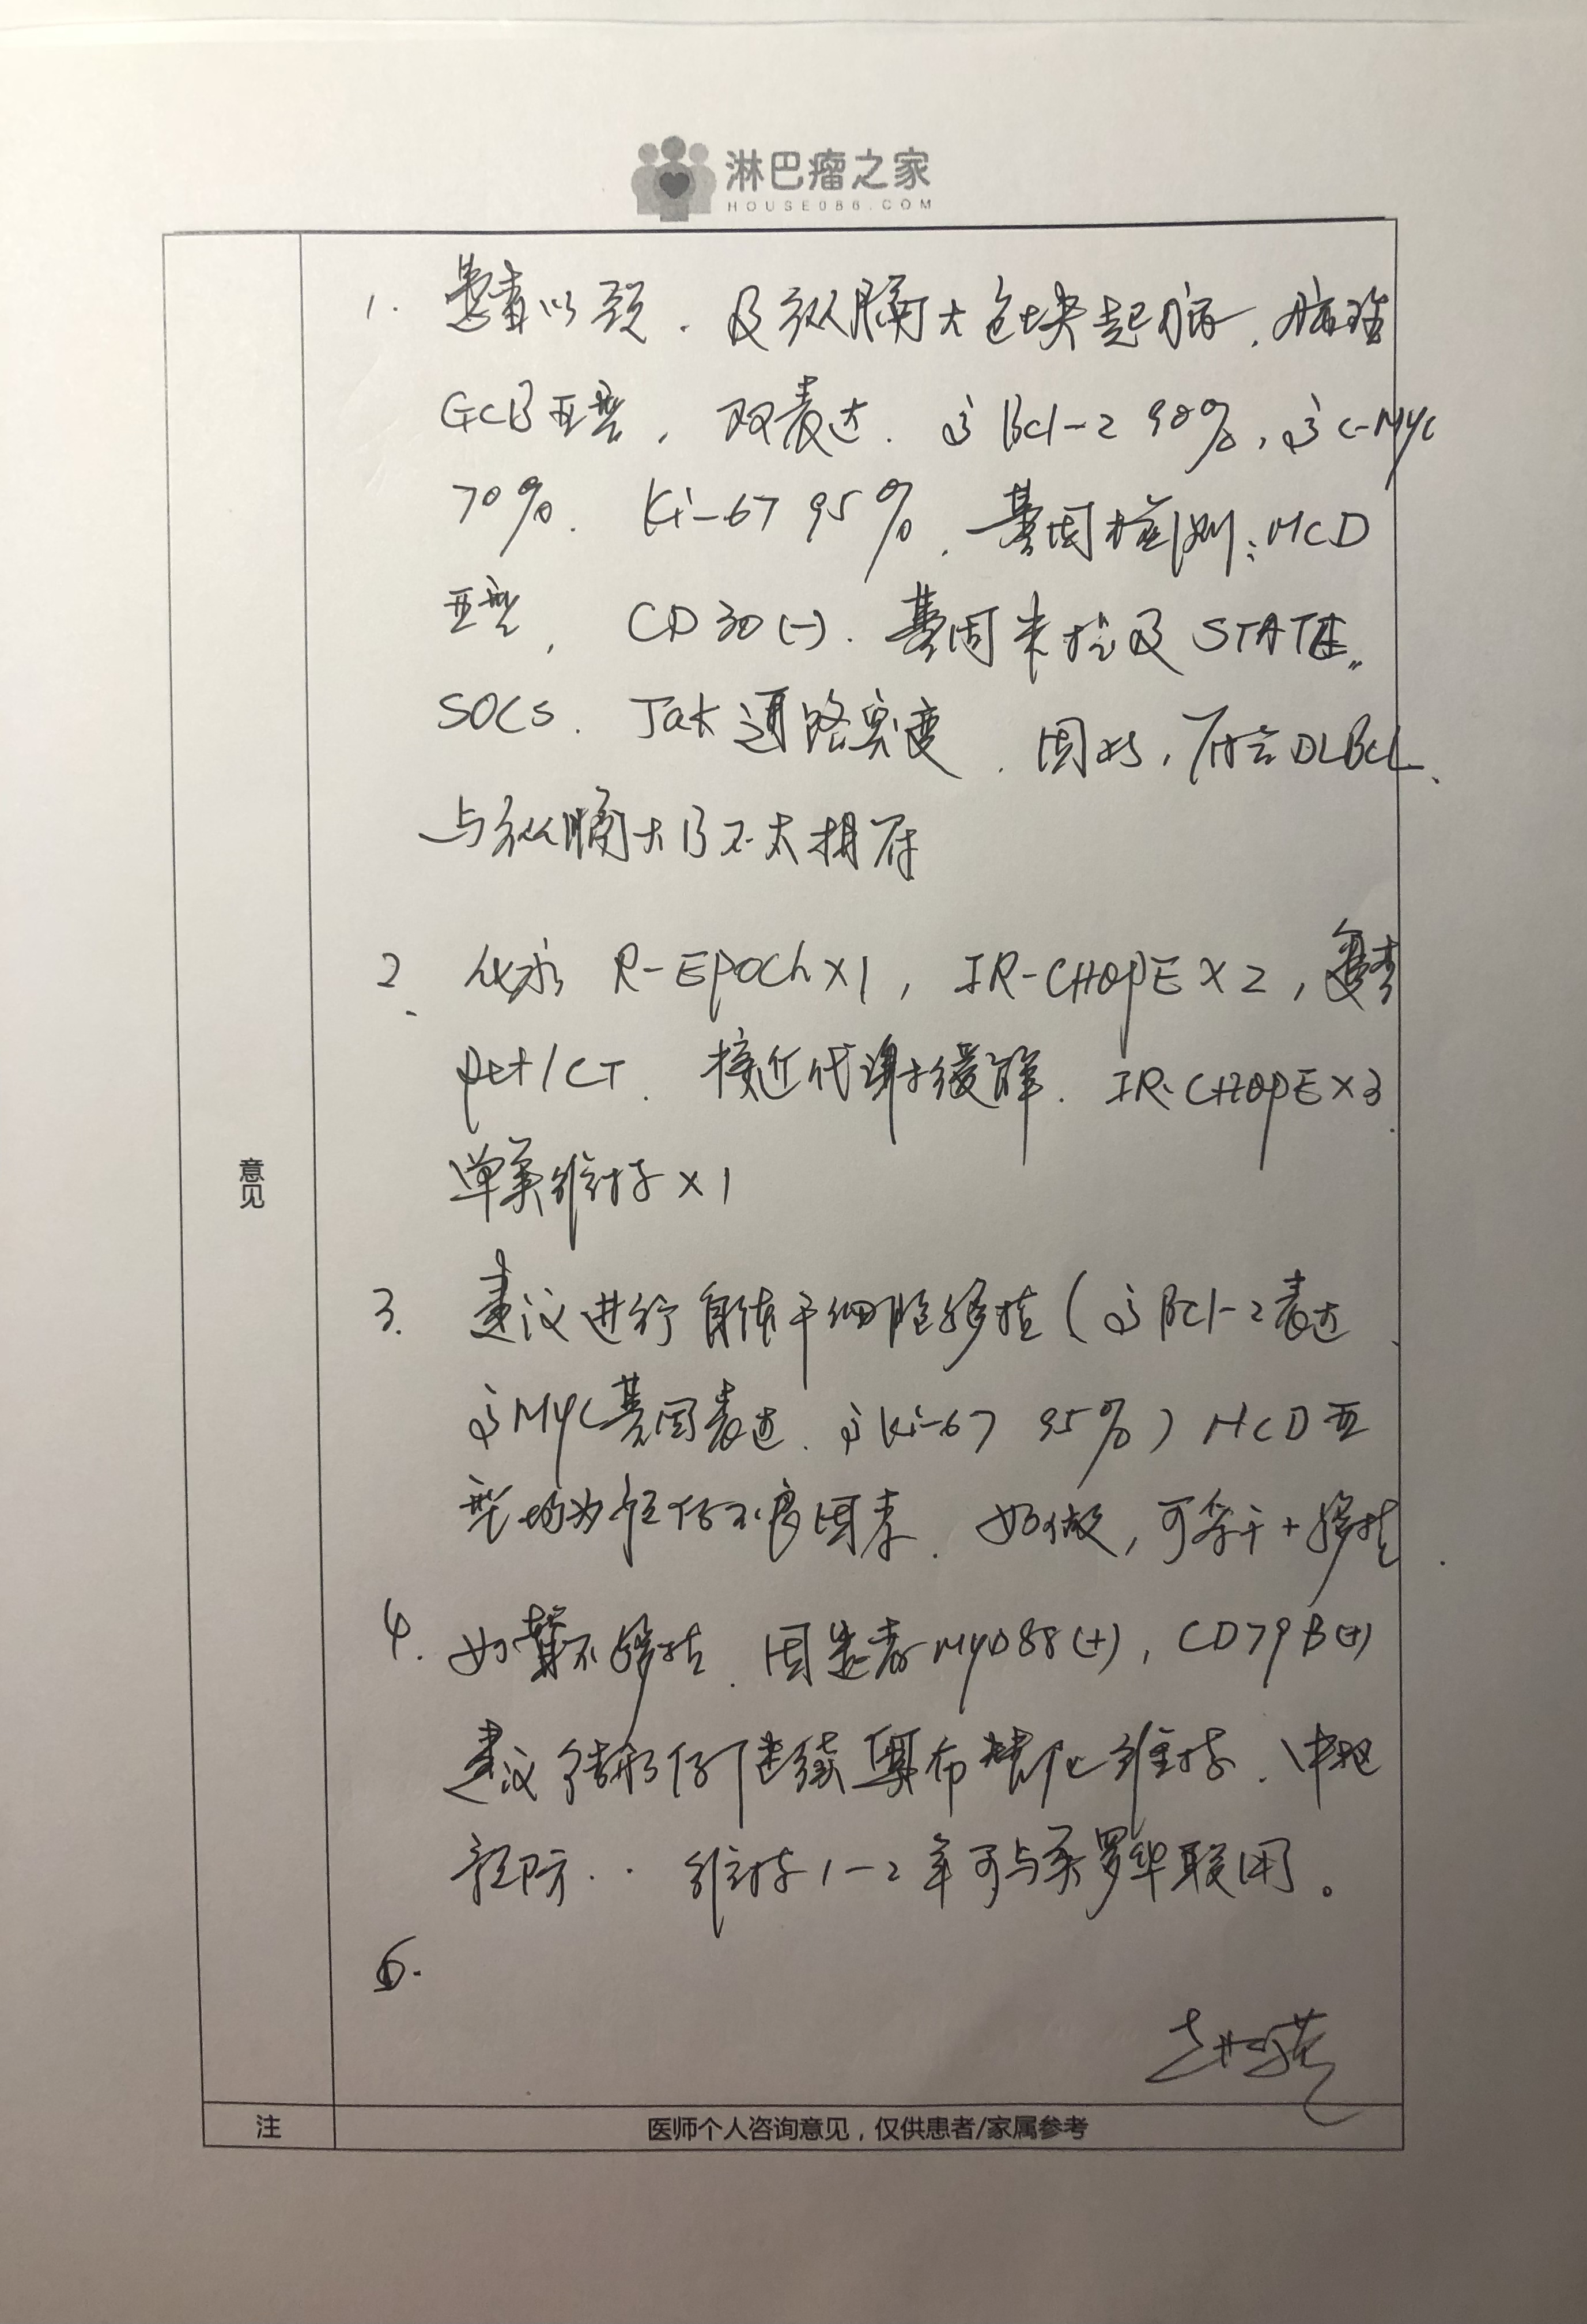 淋巴瘤之家
HOUSE086.COM
1. 患者以颈、及纵膈大包块起病，病理
GCB亚型，双表达。高Bcl-2 90%，高C-MYC
70%. Ki-67 95%，基因检测：MCD
亚型，CD30(-). 基因未检及STAT
SOCS. Jak通路突变，因此，符合DLBCL、
与纵膈大B不太相符
2. 化疗 R-EPOCh×1，IR-CHOPE×2，复查
pet/CT. 接近代谢缓解. IR-CHOPE×3
单药维持×1
3. 建议进行自体干细胞移植（高Bcl-2表达
高MYC基因表达、高Ki-67 95%）MCD亚
型均为预后不良因素. 如做，可采干+移植
4. 如暂不移植. 因患者MyD88(+)，CD79B(+)
建议继续 维持、中枢
预防.. 维持1-2年可与美罗华联用。
6.
意见
注
医师个人咨询意见，仅供患者/家属参考